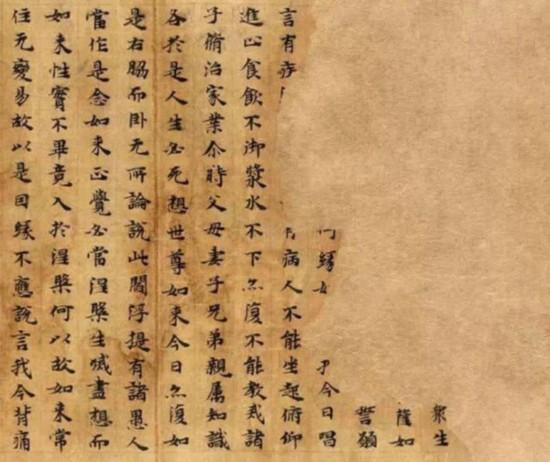 衆生
薩如
願
緣 今日唱
言有疾 病人不能坐起俯仰
進止食飲不御漿水不下亦復不能教戒諸
子脩治家業尒時父母妻子兄弟親属知識
各於是人生必死想世尊如來今日亦復如
是右脇而卧无所論說此閻浮提有諸愚人
當作是念如來正覺必當涅槃生滅盡想而
如來性實不畢竟入於涅槃何以故如來常
住无變易故以是因緣不應說言我今背痛